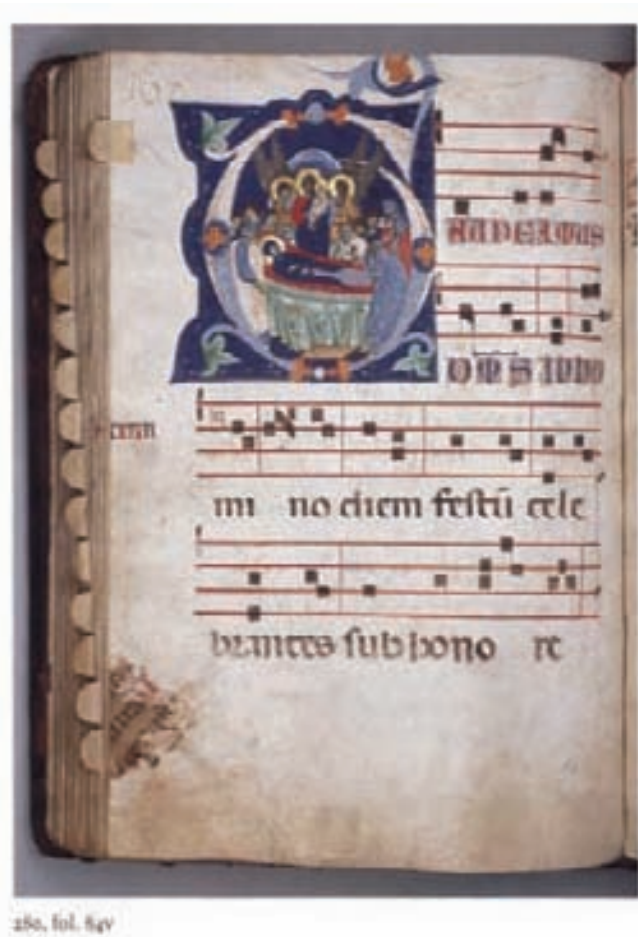 AUDEAMUS
OMS IN DO
mi no diem festū cele
brantes sub hono re
280, fol. 84v